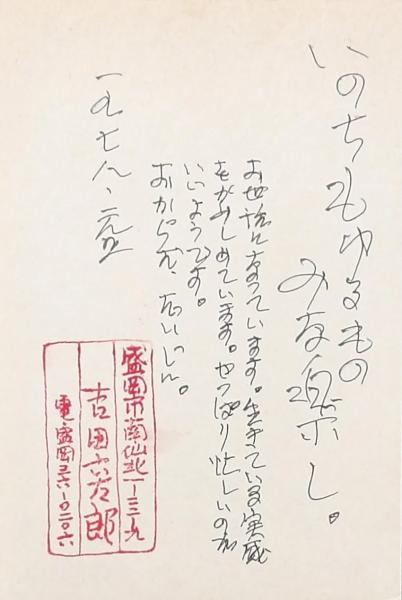 いのちもゆるもの
みな美し。
お世話になっています。生きている実感
をかみしめています。やっぱり忙しいのが
いいようです。
おからだ、
一九七八、
盛岡市南仙北一ー三ー九
吉田六太郎
電・盛岡三六ー〇二〇六